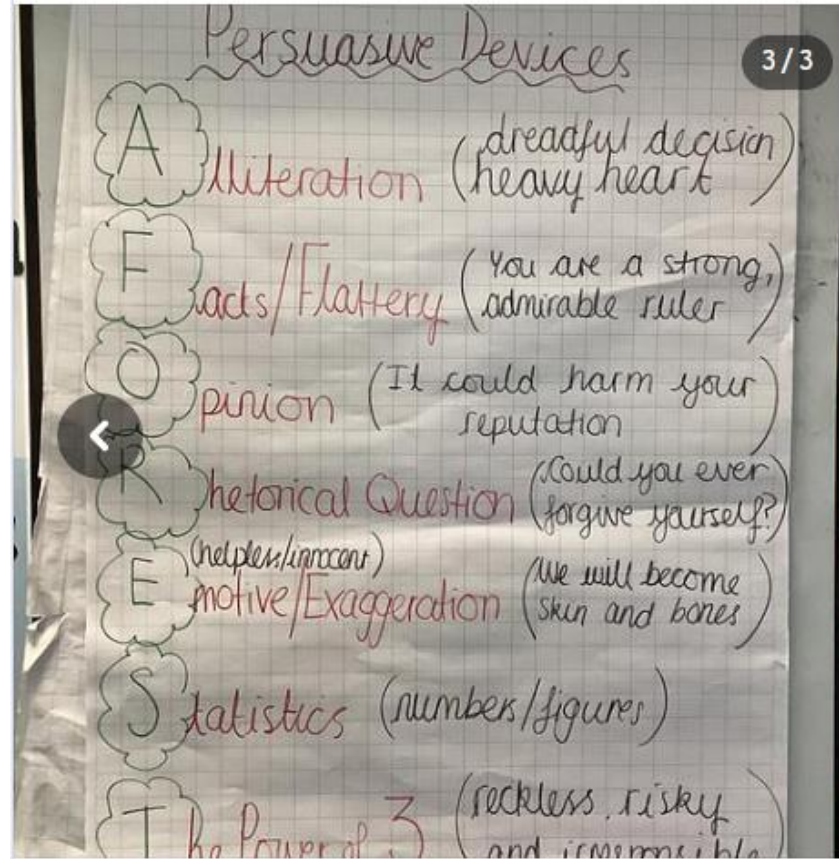 Persuasive Devices
3/3
Alliteration (dreadful decision
heavy heart)
Facts/Flattery (You are a strong,
admirable ruler)
Opinion (It could harm your
reputation)
Rhetorical Question (Could you ever
forgive yourself?)
(helpless/innocent)
Emotive/Exaggeration (We will become
skin and bones)
Statistics (numbers/figures)
The Power of 3 (reckless, risky
and irresponsible